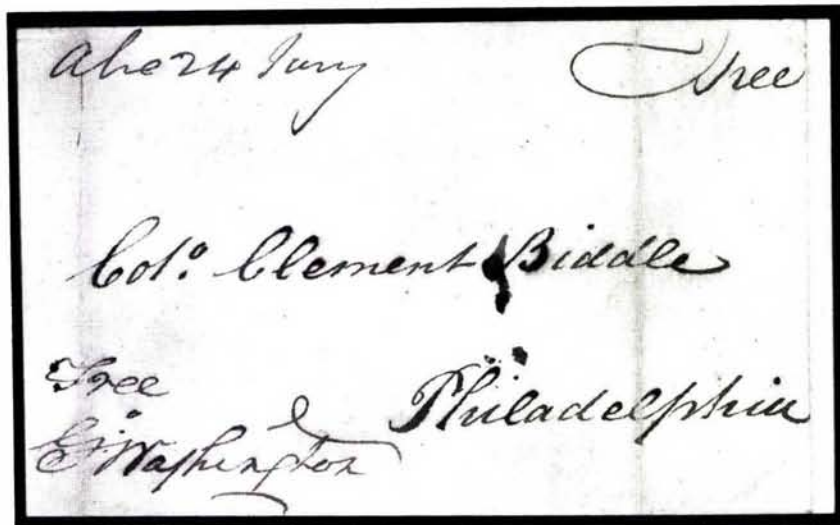 Alex 24 Jany Free
Col.º Clement Biddle
Free Philadelphia
G:Washington